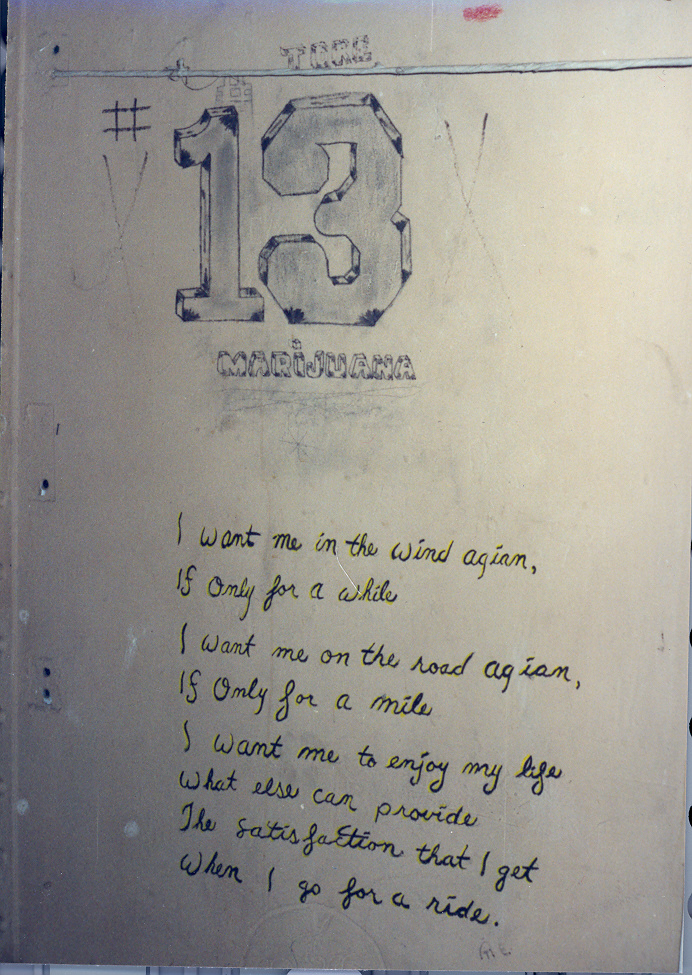 # 13
MARIJUANA
I want me in the wind agian,
If Only for a while
I want me on the road agian,
If Only for a mile
I want me to enjoy my life
What else can provide
The satisfaction that I get
When I go for a ride.